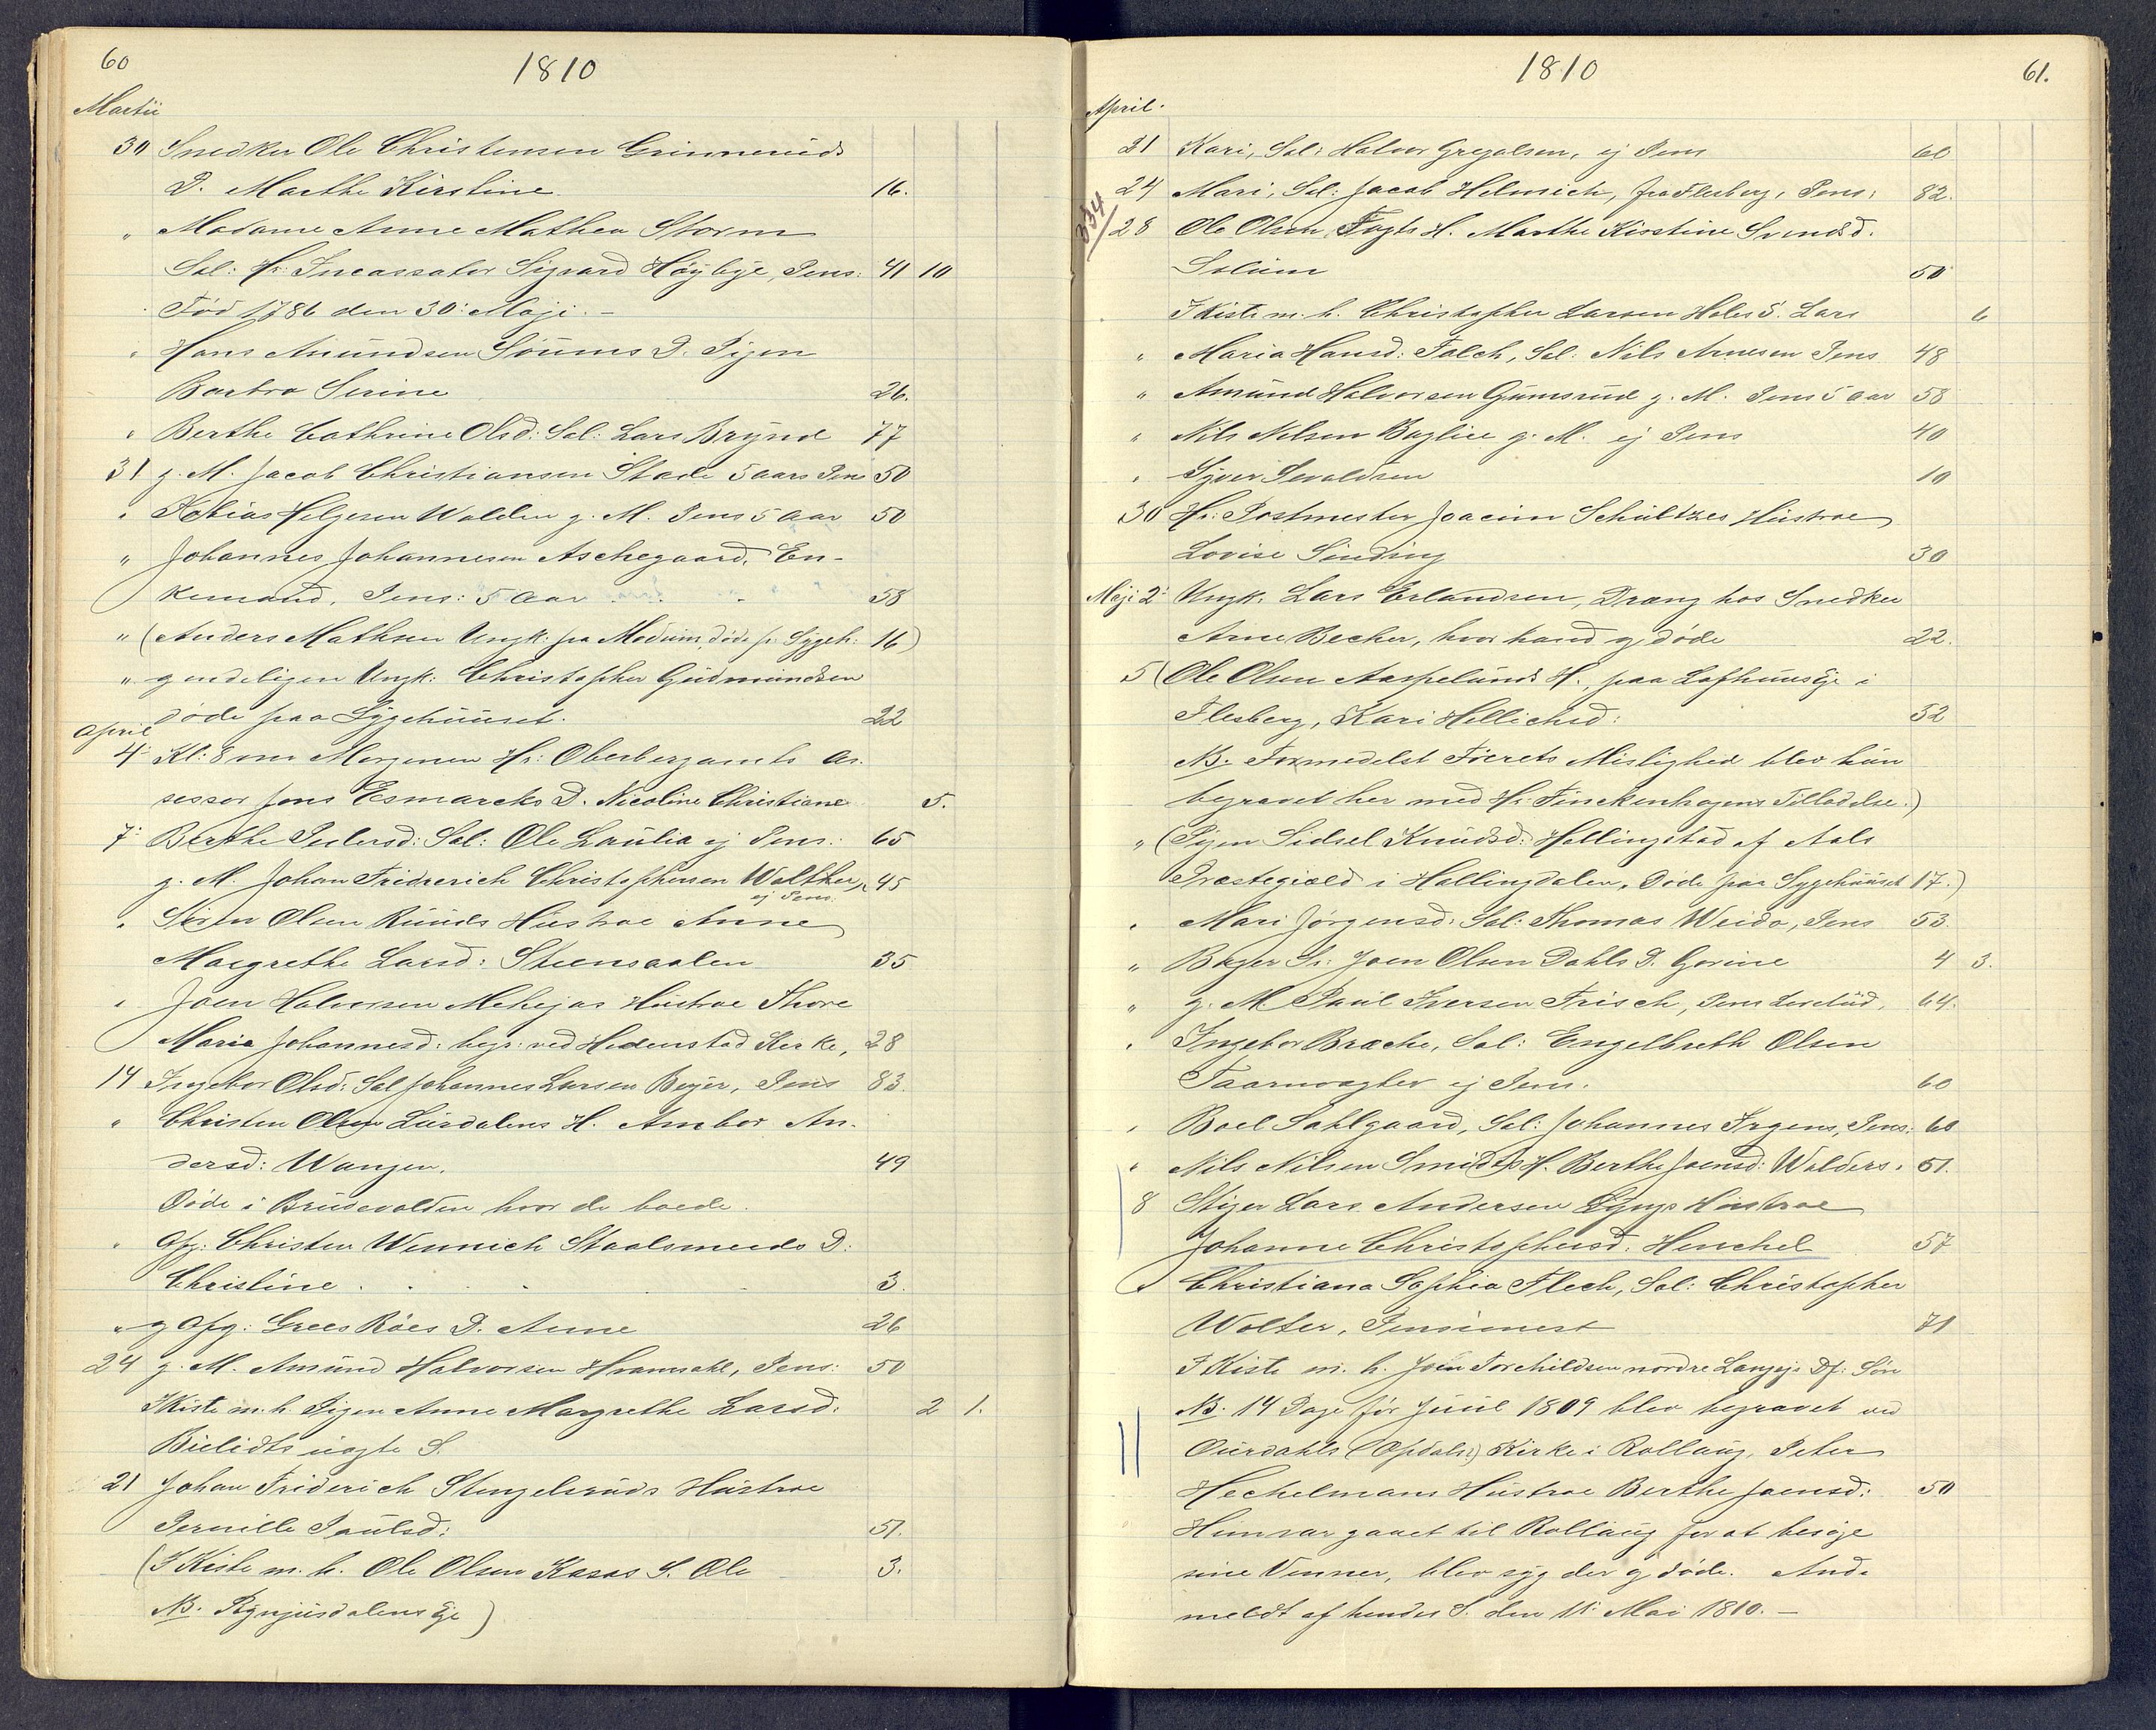 60
1810
Martii
30 Snedker Ole Christensen Grinneruds
D. Marthe Kirstine 16.
" Madame Anne Mathea Storm
Sal: Hr: Incassator Sigvard Høybye, Pens: 41 10
Fød 1786 den 30: Maji. -
" Hans Amundsen Soums D. Pigen
Barbro Serine 26.
" Berthe Cathrine Olsd: Sal: Lars Brynd 77
31 g. M. Jacob Christiansen Stade 5 aars Pens 50
" Tobias Helgesen Walden g. M. Pens 5 Aar 50
" Johannes Johannesen Aschegaard, En-
kemand, Pens: 5 Aar 58
" (Anders Mathsen Ungk: fra Modum, døde p: Sygeh: 16)
" gudeligen Ungk: Christopher Gudmundsen
døde paa Sygehuuset. 22
April
4: Kl: 8 om Morgenen Hr: Oberbergamts As-
sessor Jens Esmarcks D. Nicoline Christiane 5.
7: Berthe Pedersd: Sal: Ole Laulia ej Pens: 65
g. M. Johan Fridrerich Christophersen Walther, 45
ej Pens.
" Søren Olsen Ruuds Hustroe Anne
Margrethe Larsd: Steensaalen 35
" Joen Halvorsen Mehejas Hustroe Thore
Maria Johannesd: begr: ved Hedenstad Kirke, 28
14 Ingebor Olsd: Sal Johannes Larsen Beyer, Pens 83
" Christen Olsen Lurdalens H. Ambor An-
dersd: Wangen. 49
Døde i Brudevolden hvor de boede.
" Opg: Christen Wennich Staalsmeds D:
Christine 3.
" g Opg: Grees Røes D. Anne 26
24 g. M. Amund Halvorsen Hvamsahl, Pens: 50
I Kiste m. h. Pigen Anne Margrethe Larsd: 2 1.
Bielidts uægte S.
21 Johan Friderich Stengelsruds Hustroe
Pernille Paulsd: 51.
(I Kiste m. h. Ole Olsen Kasas S. Ole 3.
NB. Rynjusdalens Eje)
1810
61.
April.
21 Kari, Sal: Halvor Gregalsen, ej Pens 60
24 Mari, Sal: Jacob Helmich, fra Flesberg, Pens: 82.
334
28 Ole Olsen Fogts H. Marthe Kirstine Svendsd.
Solum 50
I Kiste m. h. Christopher Larsen Holes S. Lars 6
" Maria Hansd: Falch, Sal: Nils Arnesen Pens 48
" Amund Halvorsen Gumsrud g. M. Pens 5 aar 58
" Nils Nilsen Baglie g. M. ej Pens 40
" Syver Sevaldsen 10
30 Hr: Postmester Joacim Schultzes Hustroe
Lovise Sinding 30
Maji 2: Ungk. Lars Erlandsen, Dreng hos Snedker
Arne Becker, hvor hand og døde 22.
5 (Ole Olsen Aaspelunds H., paa Lofthuus Eje i
Flesberg, Kari Hellichsd: 32
NB. Formedelst Føerets Mislighed blev hun
begravet her med Hr: Finckenhagens Tilladelse.)
" (Pigen Sidsel Knudsd: Hallingstad af Aals
Præstegiæld i Hallingdalen, Døde paa Sygehuuset 17.)
" Mari Jørgensd: Sal: Thomas Weido, Pens 53.
" Bager Sr: Joen Olsen Dahls D. Gorine 4 3.
" g. M. Paul Iversen Frisch, Pens 64.
" Ingebor Brache, Sal: Engelbreth Olsen
Taarnvagter ej Pens. 60
" Boel Sahlgaard, Sal: Johannes Irgens, Pens: 60
" Nils Nilsen Smidts H. Berthe Joensd: Walders. 51.
8 Stiger Lars Andersen Lyngs Hustroe
Johanne Christophersd: Henchel 57
" Christiana Sophia Flech, Sal: Christopher
Wolter, Pensionert 71
I Kiste m. h. Joen Torchildsen nordre Df: Søn
NB. 14 Dage før Juul 1809 blev begravet ved
Ourdahls (Opdals?) Kirke i Rollaug, Peter
Hechelmans Hustroe Berthe Joensd: 50
Hun var gaaet til Rollaug for at besøge
sine Venner, blev syg der og døde. And-
meldt af hendes S. den 11: Mai 1810. -